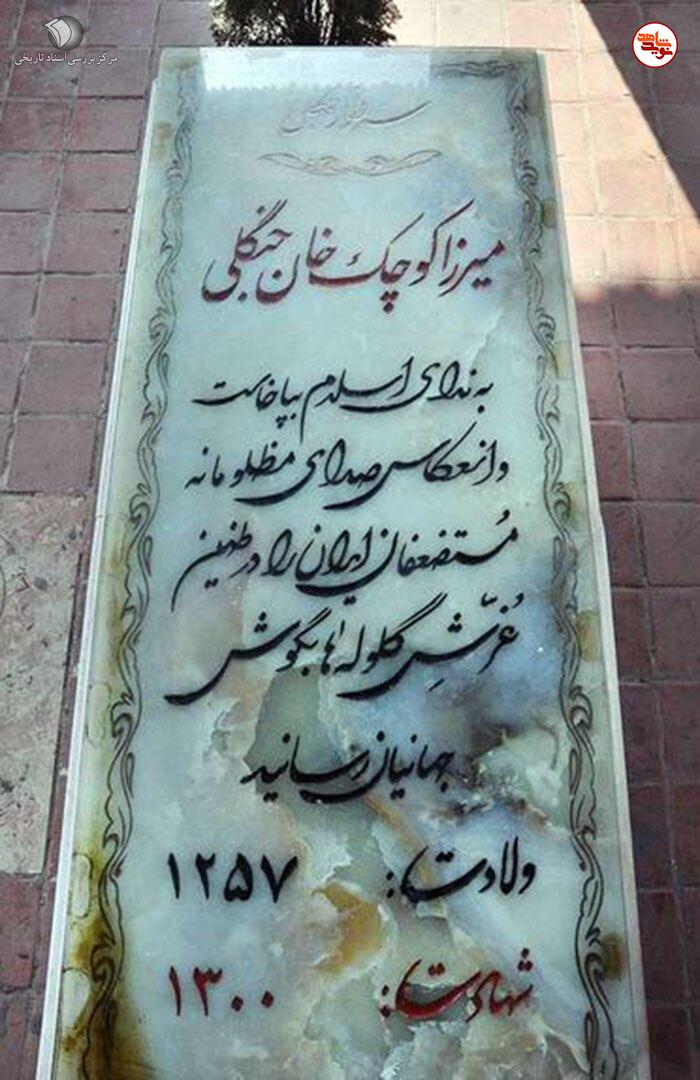 مرکز بررسی اسناد تاریخی
نوید شاهد
سردار جنگل
میرزا کوچک خان جنگلی
به ندای اسلام بپاخاست
و انعکاس صدای مظلومانه
مُستضعفان ایران را در طنین
غُرّشِ گلوله‌ها بگوش
جهانیان رسانید
ولادت: ۱۲۵۷
شهادت: ۱۳۰۰